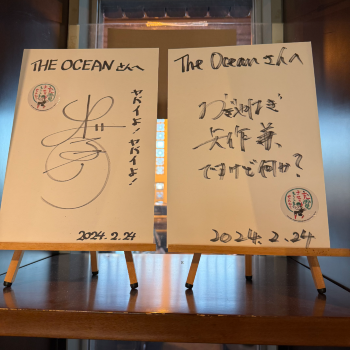 THE OCEANさんへ
ヤバイよ!ヤバイよ!
2024.2.24
The Oceanさんへ
兼
ですけど何か?
2024.2.24